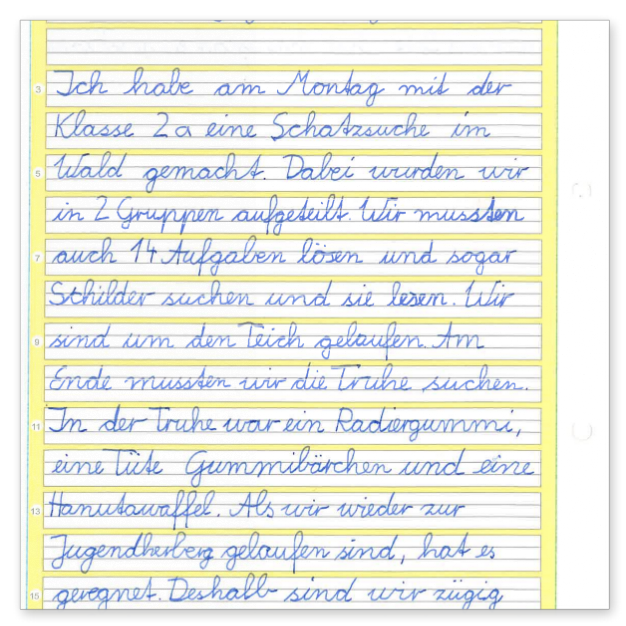 Ich habe am Montag mit der
Klasse 2a eine Schatzsuche im
Wald gemacht. Dabei wurden wir
in 2 Gruppen aufgeteilt. Wir mussten
auch 14 Aufgaben lösen und sogar
Schilder suchen und sie lesen. Wir
sind um den Teich gelaufen. Am
Ende mussten wir die Truhe suchen.
In der Truhe war ein Radiergummi,
eine Tüte Gummibärchen und eine
Hanutawaffel. Als wir wieder zur
Jugendherberg gelaufen sind, hat es
geregnet. Deshalb sind wir zügig